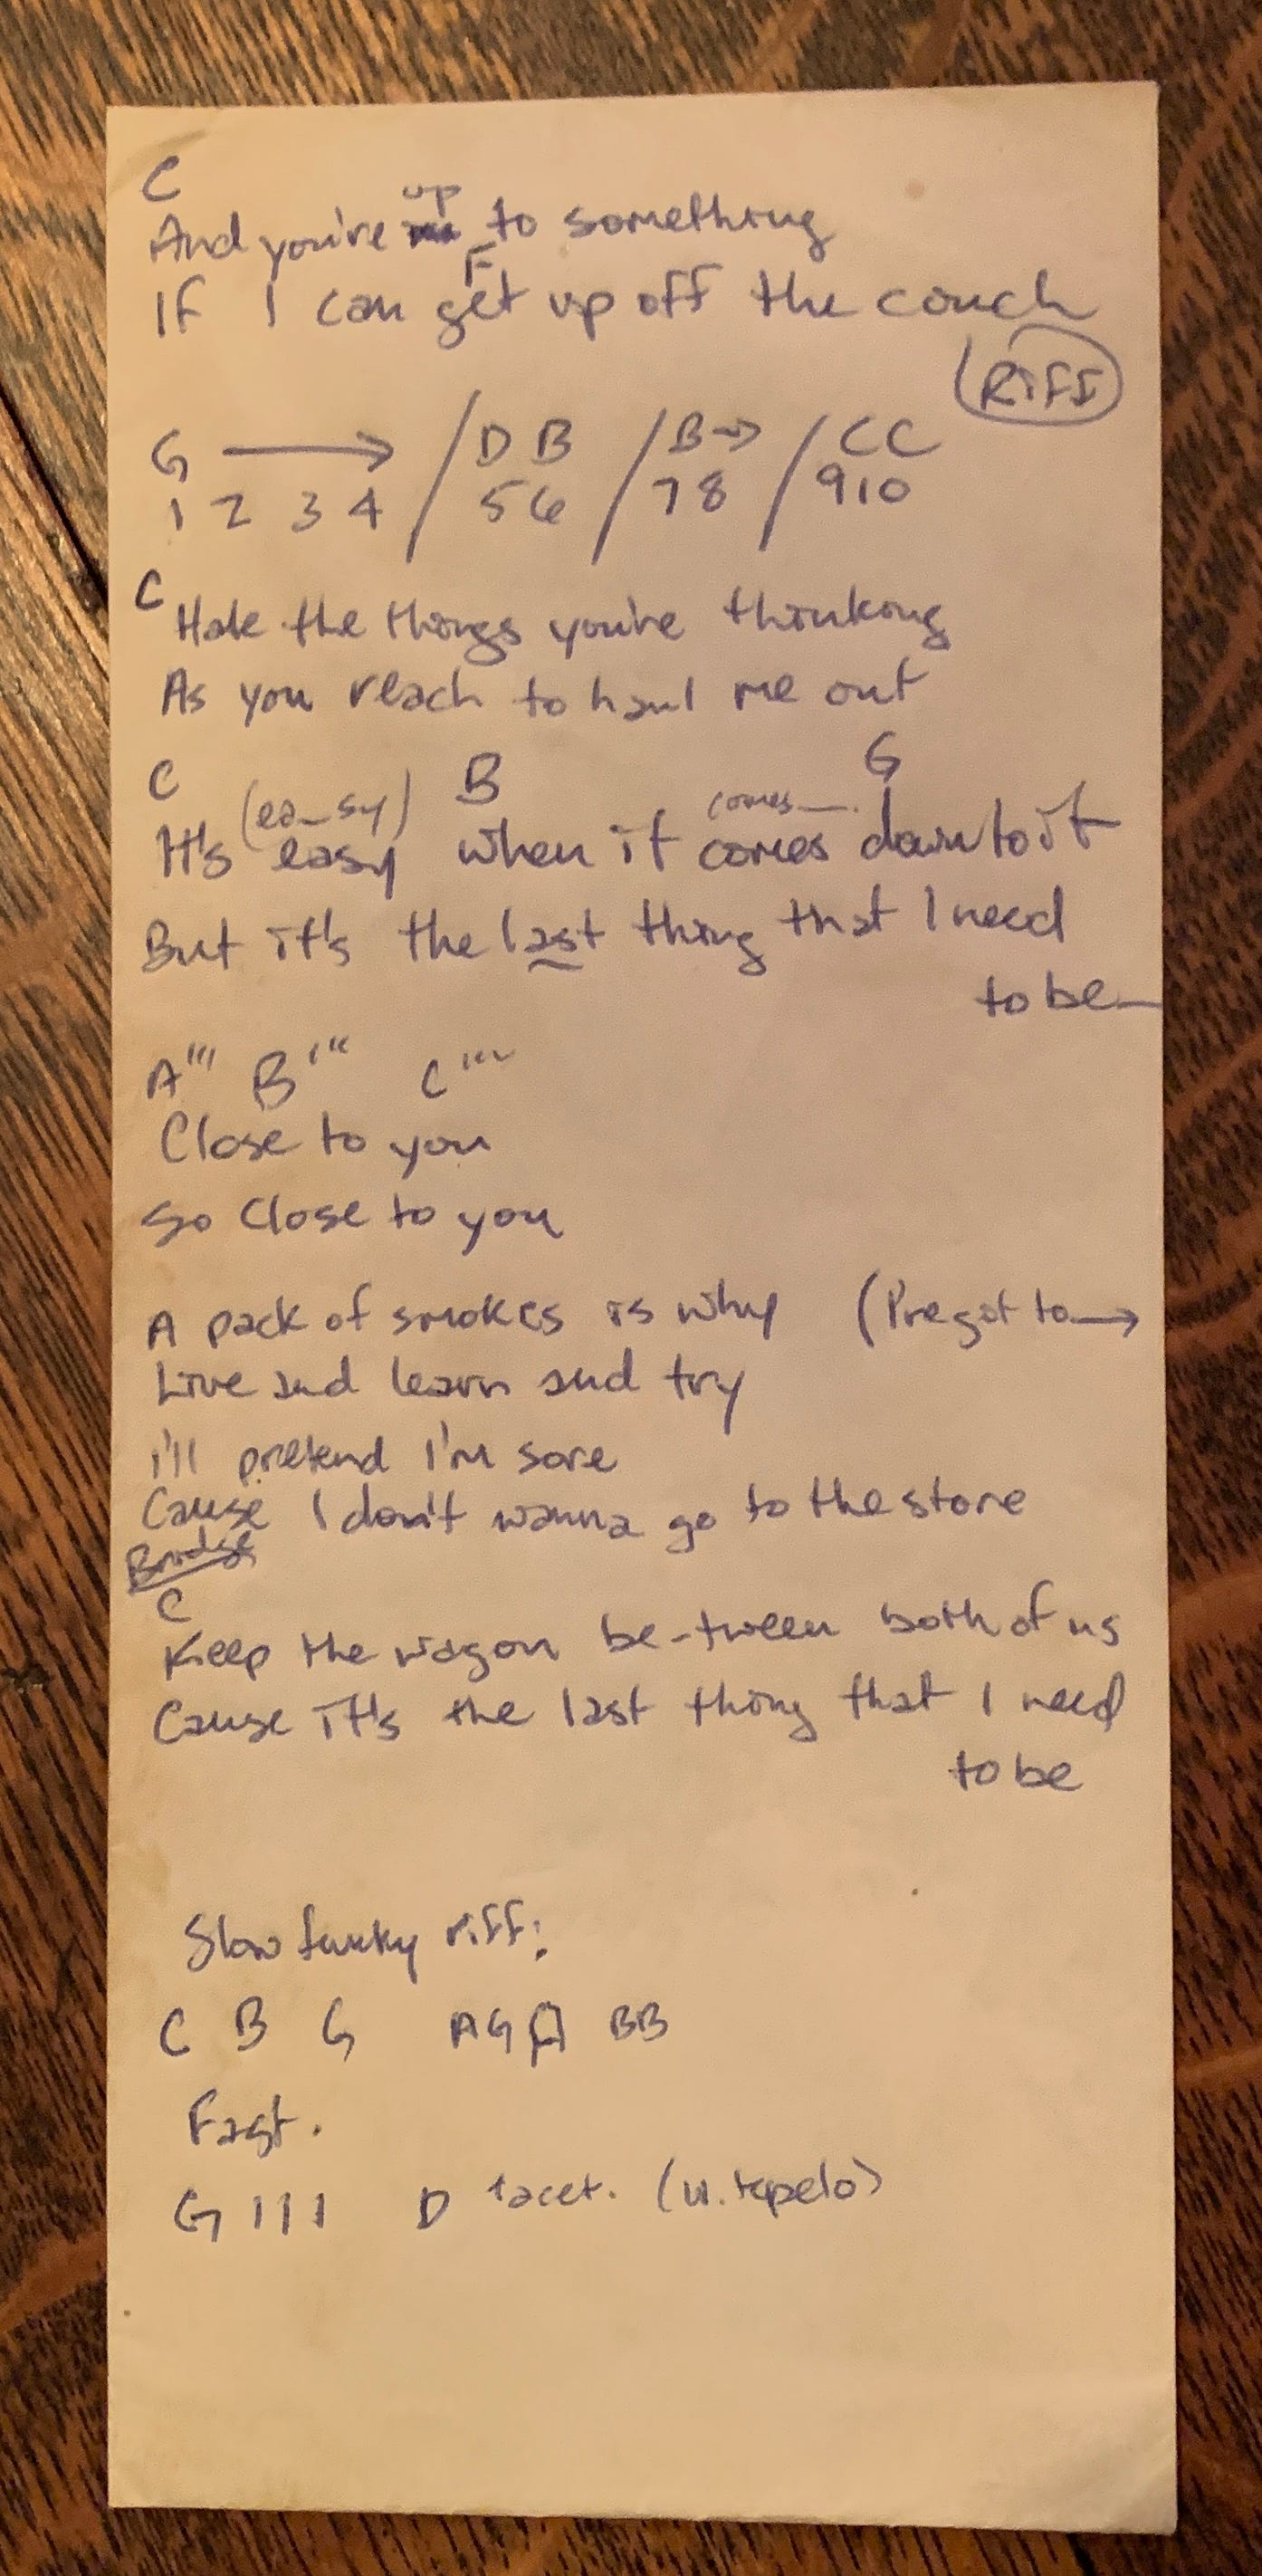 C
up
And you're to something
F
If I can get up off the couch
RIFF
G → / D B / B → / C C
1 2 3 4 / 5 6 / 7 8 / 9 10
C
Hate the things you're thinking
As you reach to haul me out
C (ea-sy) B comes— G
It's easy when it comes down to it
But it's the last thing that I need
to be—
A''' B''' C'''
Close to you
So close to you
A pack of smokes is why (I've got to →
Live and learn and try
I'll pretend I'm sore
Cause I don't wanna go to the store
Bridge
C
Keep the wagon be-tween both of us
Cause it's the last thing that I need
to be
Slow funky riff:
C B G A G A BB
Fast.
G | | | D tacet. (w.